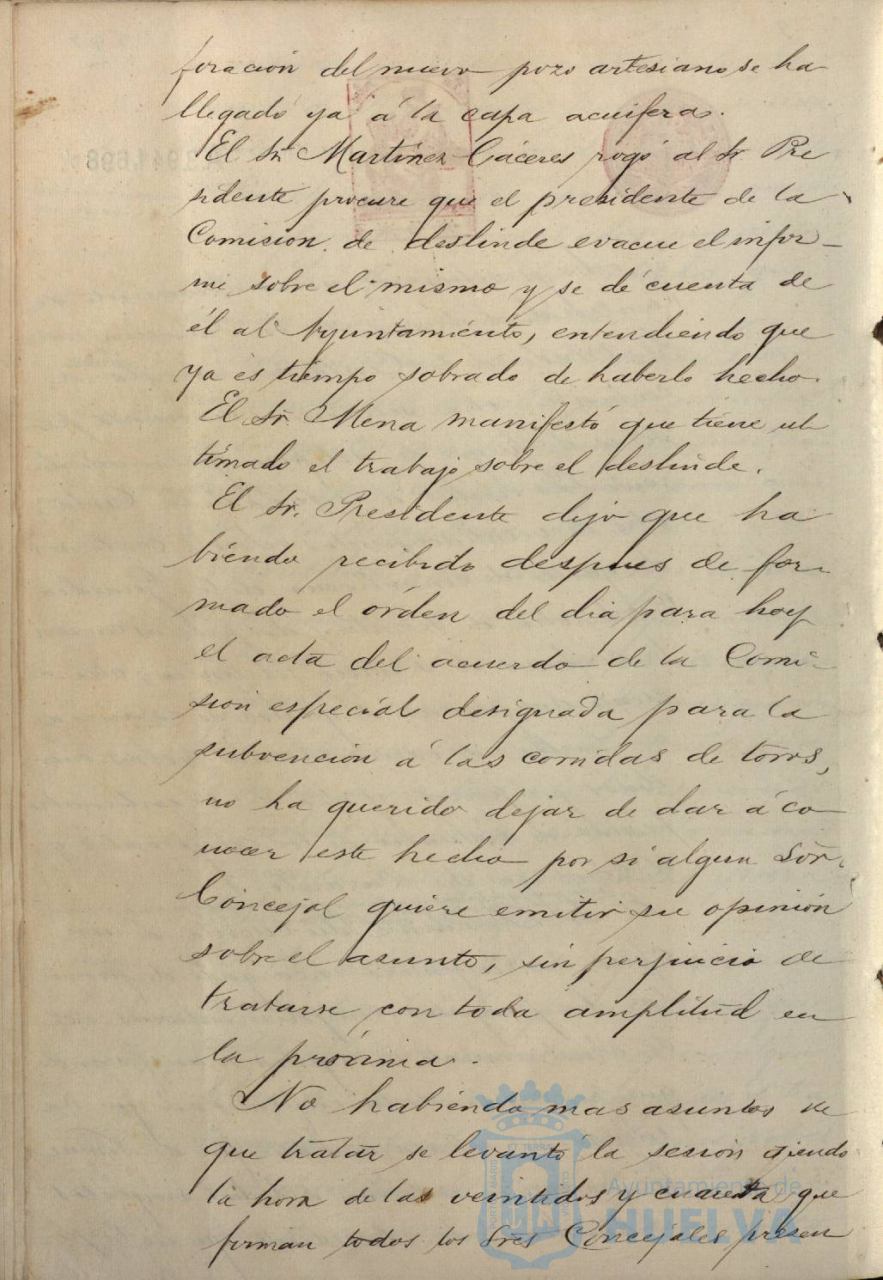 foración del nuevo pozo artesiano se ha
llegado ya á la capa acuifera.
El Sr. Martínez Cáceres rogó al Sr. Pre
sidente procure que el presidente de la
Comision de deslinde evacue el infor-
me sobre el mismo y se dé cuenta de
él al Ayuntamiento, entendiendo que
ya es tiempo sobrado de haberlo hecho.
El Sr. Mena manifestó que tiene ul
timado el trabajo sobre el deslinde.
El Sr. Presidente dijo que ha
biendo recibido despues de for
mado el órden del dia para hoy
el acta del acuerdo de la Comi-
sion especial designada para la
subvencion á las corridas de toros,
no ha querido dejar de dar á co
nocer este hecho por si algun Sor.
Concejal quiere emitir su opinión
sobre el asunto, sin perjuicio de
tratarse con toda amplitud en
la próxima.
No habiendo mas asuntos de
que tratar se levantó la sesion siendo
la hora de las veintidos y cuarenta que
firman todos los Sres Concejales presen
Ayuntamiento de
HUELVA